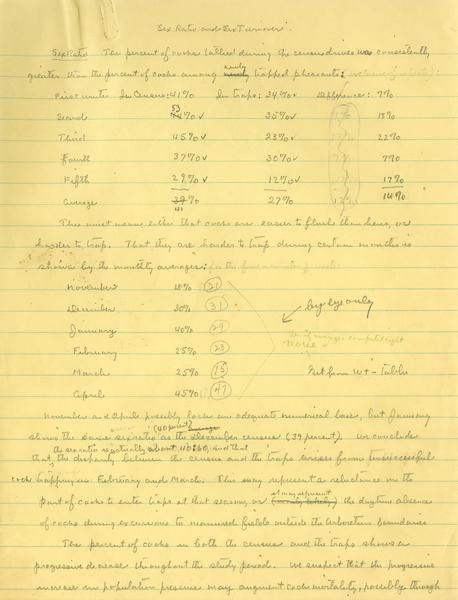 Sex Ratio and Sex Turnover.
Sex Ratio The percent of cocks tallied during the census drives was consistently
greater than the percent of cocks among newly trapped pheasants:
First winter In Census: 41% In traps: 34% ✓ Difference: 7%
Second 53 ✓ 35% ✓ 18%
Third 45% ✓ 23% ✓ 22%
Fourth 37% ✓ 30% ✓ 7%
Fifth 29% ✓ 12% ✓ 17%
Average 39% 41 27% 14%
This must mean either that cocks are easier to flush than hens, or
harder to trap. That they are harder to trap during certain months is
shown by the monthly averages:
November 18% 21
December 30% 31
January 40% 29
February 25% 23
March 25% 15
April 45% 47
by eye only
Get from Wt - Tables
November and April possibly lacks an adequate numerical base, but January
(40 percent)
shows the same sex ratio as the December census (39 percent). We conclude
the sex ratio is actually about 40:60, and that
that the disparity between the census and the traps arises from unsuccessful
cock trapping in February and March. This may represent a reluctance on the
part of cocks to enter traps at that season, or it may represent the daytime absence
of cocks during excursions to manured fields outside the Arboretum boundaries.
The percent of cocks in both the census and the traps shows a
progressive decrease throughout the study period. We suspect that the progressive
increase in population pressure may augment cock mortality, possibly through